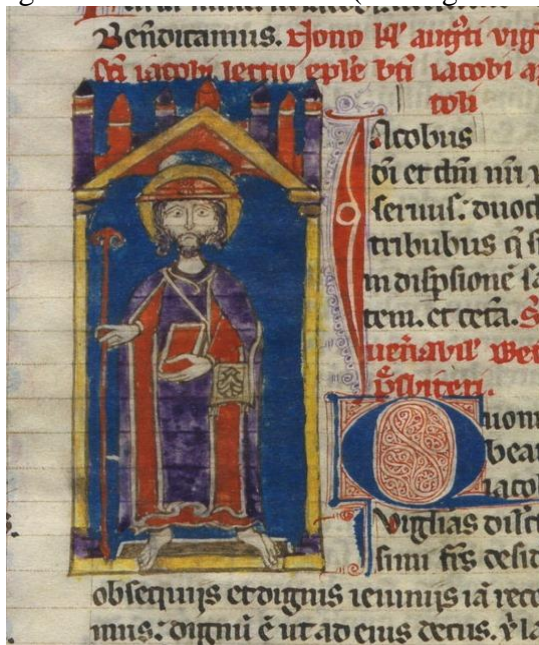 Benedicamus. Nono kl augti vig
sci iacobi lectio eple bti iacobi ap
toli
Iacobus
di et dni nri
seruus: duod
tribubus q s
in dispsione sa
tem. et ceta. S
uenabil bed
psbiteri.
Quoni
bea
iacob
Vigilias dilc
simi frs desid
obsequijs et dignis ieiunijs ia rece
mus: dignu e ut ad eius decus.